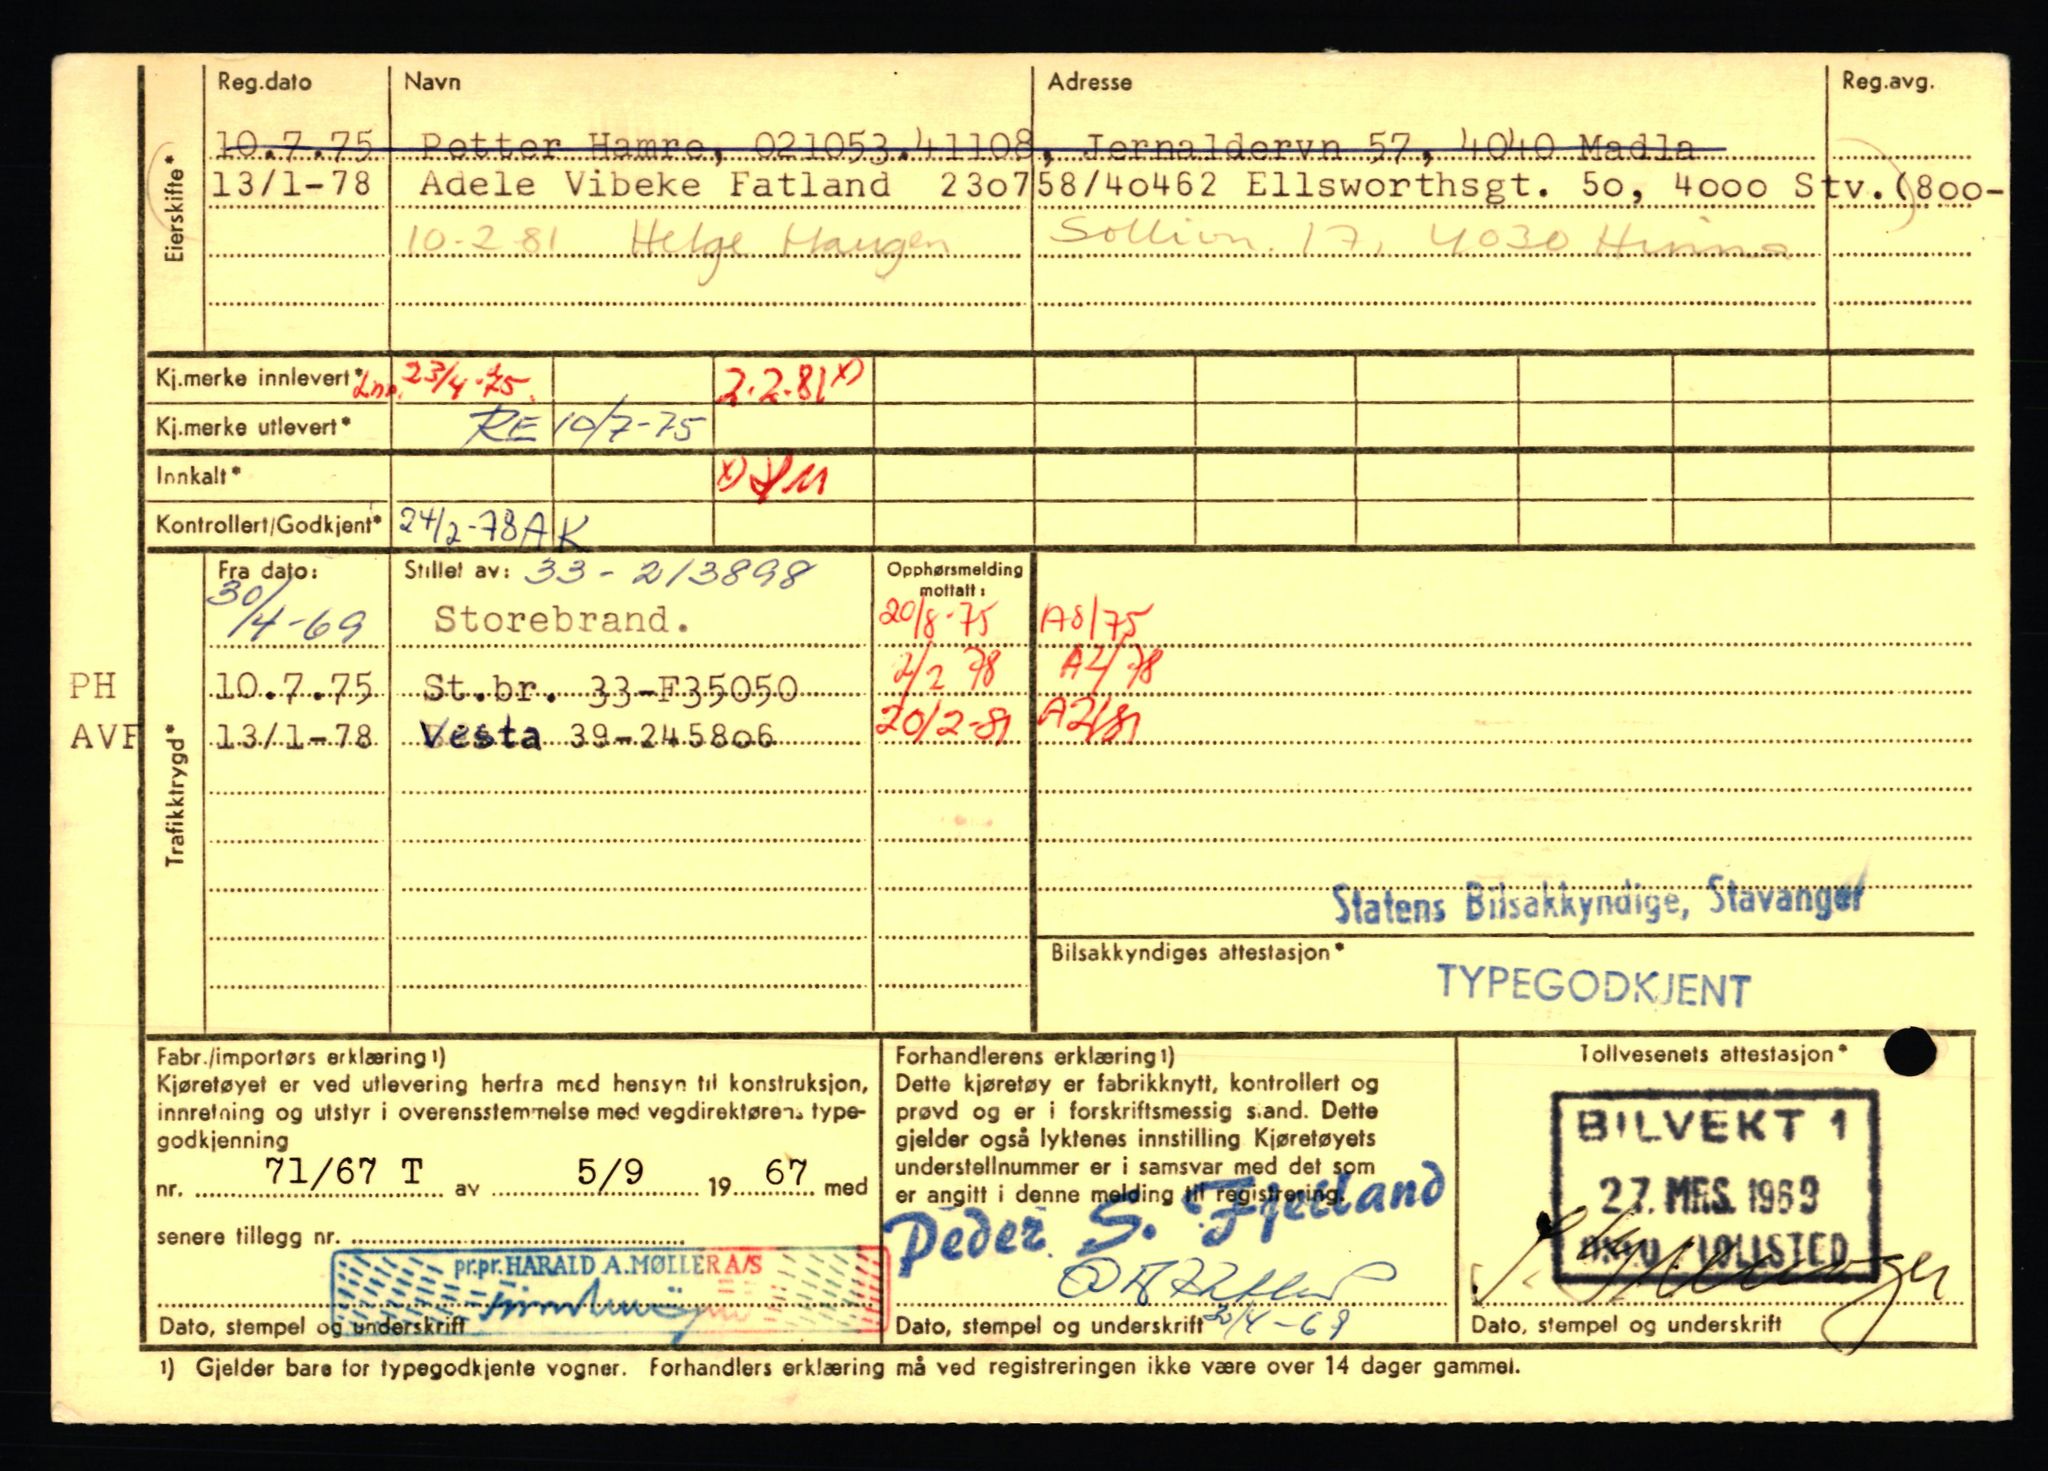 Reg.dato Navn Adresse Reg.avg.
Eierskifte*
10.7.75 Petter Hamre, 021053.41108, Jernaldervn 57, 4040 Madla
13/1-78 Adele Vibeke Fatland 230758/40462 Ellsworthsgt. 50, 4000 Stv.(800-
10-2-81 Helge Haugen Sollivn. 17, 4030 Hinna
Kj.merke innlevert* Inn. 23/4-75. 2.2.81 x)
Kj.merke utlevert* RE 10/7-75
Innkalt* x)
Kontrollert/Godkjent* 24/2-78 AK
Trafikktrygd*
Fra dato: Stillet av: 33-213898 Opphørsmelding mottatt:
30/4-69 Storebrand. 20/8-75 A8/75
PH 10.7.75 St.br. 33-F35050 2/2 78 A2/78
AVF 13/1-78 Vesta 39-245806 20/2-81 A2/81
Statens Bilsakkyndige, Stavanger
Bilsakkyndiges attestasjon*
TYPEGODKJENT
Fabr./importørs erklæring 1)
Kjøretøyet er ved utlevering herfra med hensyn til konstruksjon,
innretning og utstyr i overensstemmelse med vegdirektørens type-
godkjenning
nr. 71/67 T av 5/9 1967 med
senere tillegg nr.
pr.pr. HARALD A. MØLLER A/S
Dato, stempel og underskrift
Forhandlerens erklæring 1)
Dette kjøretøy er fabrikknytt, kontrollert og
prøvd og er i forskriftsmessig stand. Dette
gjelder også lyktenes innstilling Kjøretøyets
understellnummer er i samsvar med det som
er angitt i denne melding til registrering.
Peder S. Fjelland
Dato, stempel og underskrift 30/4-69
Tollvesenets attestasjon*
BILVEKT 1
27. MRS. 1969
Dato, stempel og underskrift
1) Gjelder bare for typegodkjente vogner. Forhandlers erklæring må ved registreringen ikke være over 14 dager gammel.